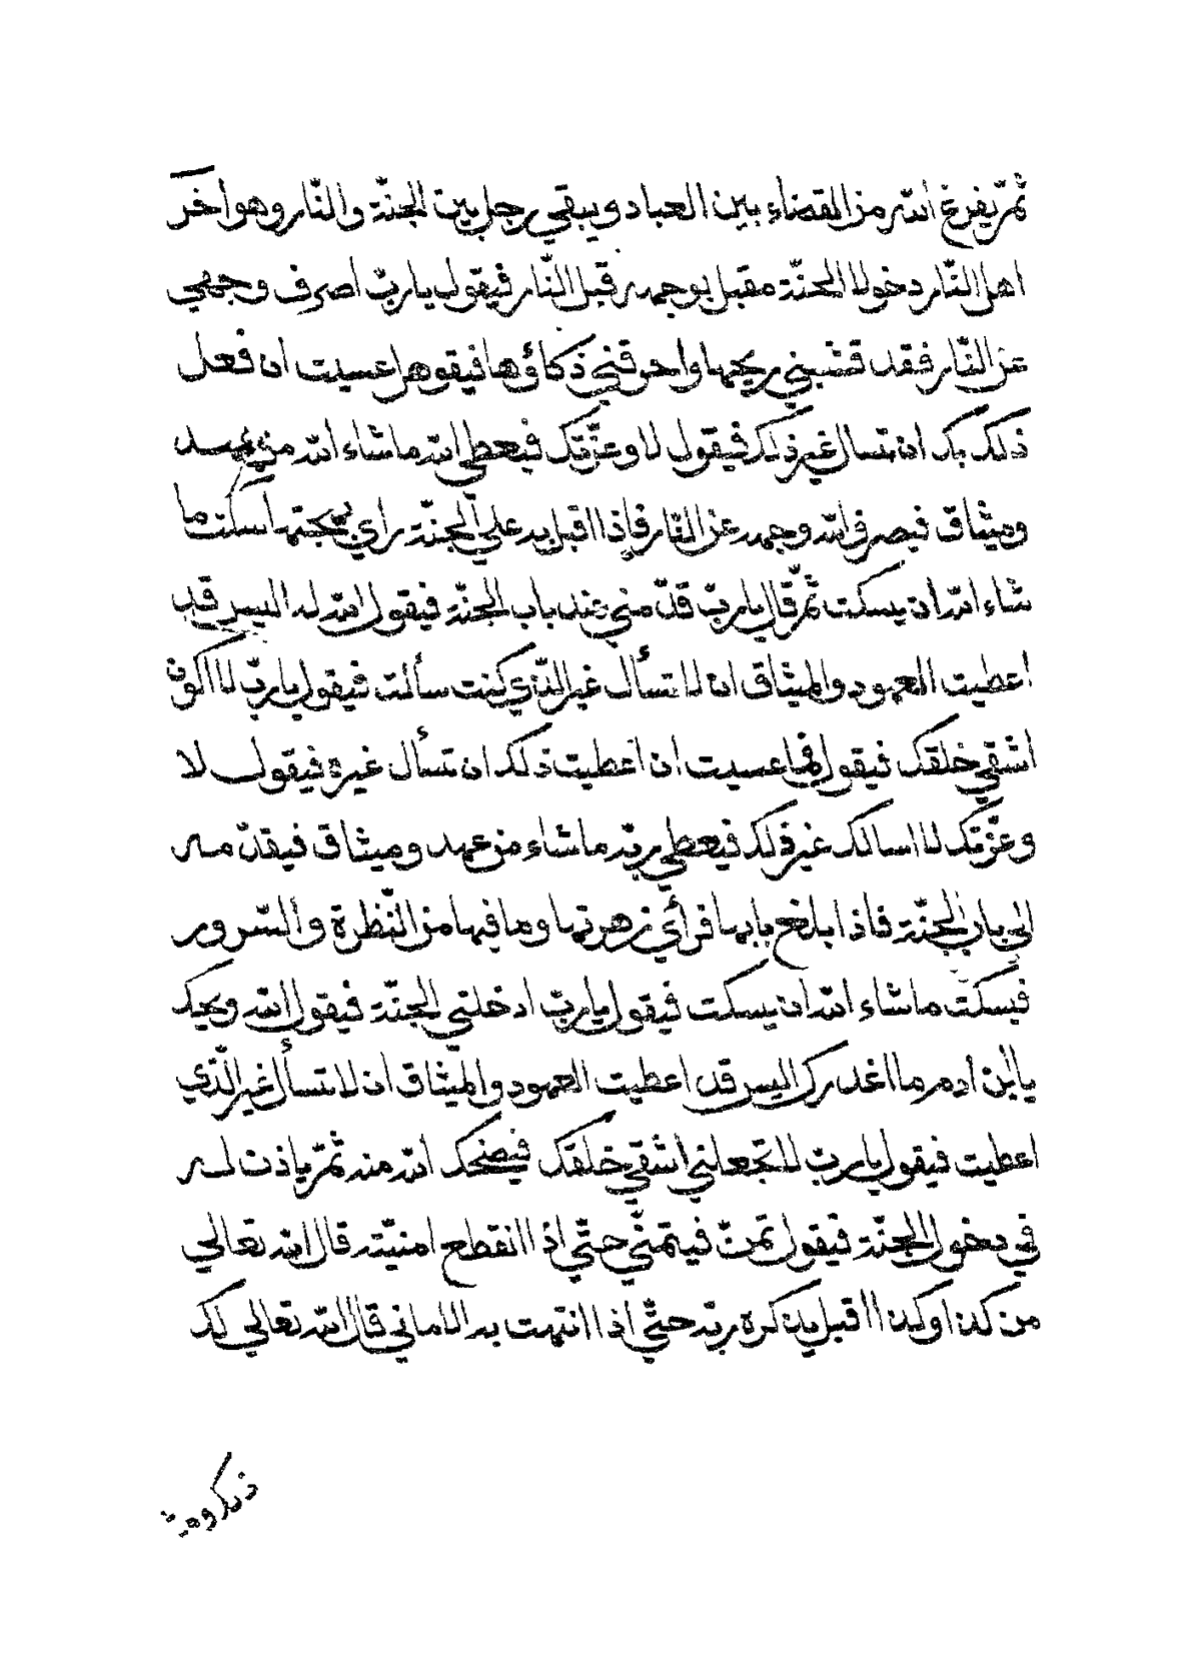 ثمّ يفرغ الله من القضاء بين العباد ويبقي رجل بين الجنّة والنّار وهو اخر
اهل النّار دخولا الجنّة مقبل بوجهه قبل النّار فيقول يا ربّ اصرف وجهي
عن النّار فقد قشبني ريحها واحرقني ذكاؤها فيقول هل عسيت ان فعل
ذلك بك ان تسال غير ذلك فيقول لا وعزّتك فيعطي الله ما شاء الله من عهد
وميثاق فيصرف الله وجهه عن النّار فاذا اقبل به علي الجنّة راي بهجتها سكت ما
شاء الله ان يسكت ثمّ قال يا ربّ قدّمني عند باب الجنّة فيقول الله له اليس قد
اعطيت العهود والميثاق ان لا تسأل غير الّذي كنت سألت فيقول يا ربّ لا اكون
اشقي خلقك فيقول فما عسيت ان اعطيت ذلك ان تسأل غيره فيقول لا
وعزّتك لا اسالك غير ذلك فيعطي ربّه ما شاء من عهد وميثاق فيقدّمه
الي باب الجنّة فاذا بلغ بابها فرأي زهرتها وما فيها من النّظرة والسّرور
فيسكت ما شاء الله ان يسكت فيقول يا ربّ ادخلني الجنّة فيقول الله ويحك
يا ابن ادم ما اغدرك اليس قد اعطيت العهود والميثاق ان لا تسأل غير الّذي
اعطيت فيقول يا ربّ لا تجعلني اشقي خلقك فيضحك الله منه ثمّ ياذن له
في دخول الجنّة فيقول تمنّ فيتمنّي حتّي اذا انقطع امنيّته قال الله تعالي
من كذا وكذا اقبل يذكره ربّه حتّي اذا انتهت به الاماني قال الله تعالي لك
ذلك ومث